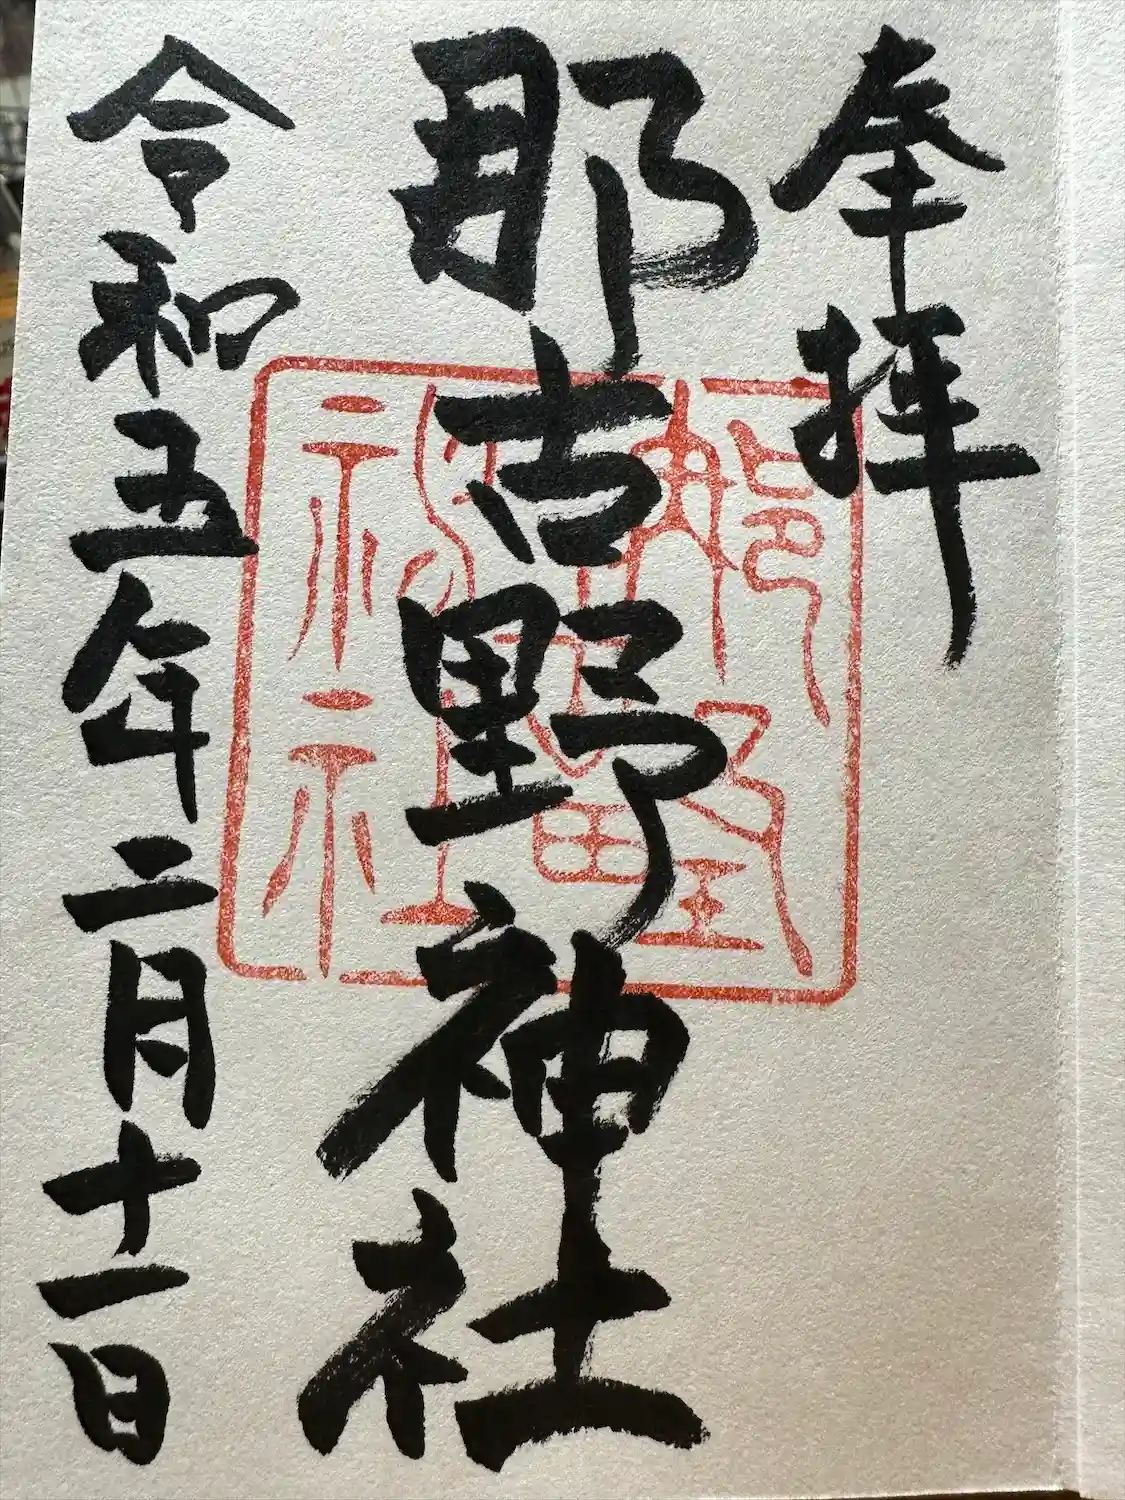 奉拝
那古野神社
令和五年二月十一日
那古野神社